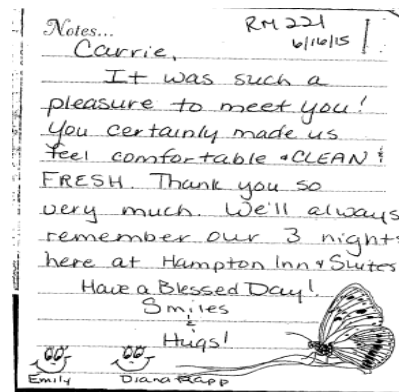 Notes...
RM 221
6/16/15
Carrie,
It was such a
pleasure to meet you!
You certainly made us
feel comfortable & CLEAN &
FRESH. Thank you so
very much. We'll always
remember our 3 nights
here at Hampton Inn & Suites
Have a Blessed Day!
Smiles
&
Hugs!
Emily
Diana